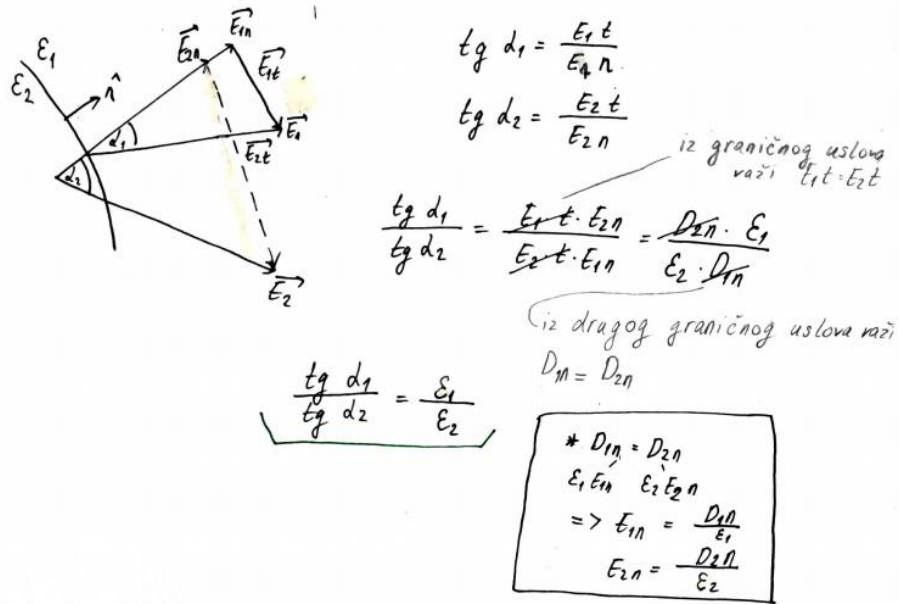 E⃗1n
E⃗2n
E⃗1t
ε1
ε2
n̂
α1
E⃗1
E⃗2t
α2
E⃗2
tg α1 = E1t / E1n
tg α2 = E2t / E2n
iz graničnog uslova
važi E1t = E2t
tg α1 / tg α2 = E1t · E2n / E2t · E1n = D2n · ε1 / ε2 · D1n
iz drugog graničnog uslova važi
D1n = D2n
tg α1 / tg α2 = ε1 / ε2
* D1n = D2n
ε1 E1n ε2 E2n
=> E1n = D1n / ε1
E2n = D2n / ε2